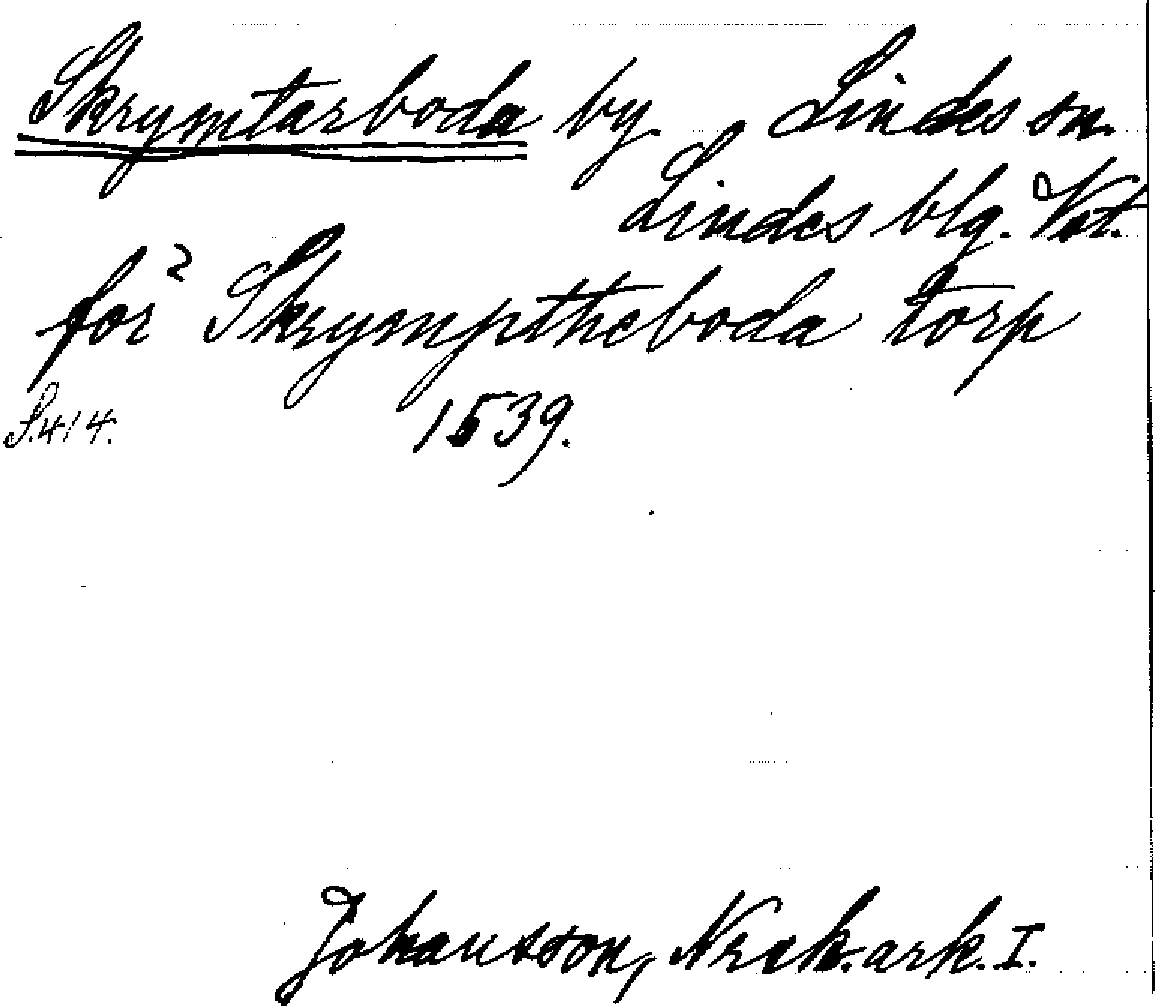 Skrymtarboda by. Lindes sn.
Lindes blg. Vst.
for² Skrymptheboda torp
S. 414. 1539.
Johansson, Norask. ark. I.